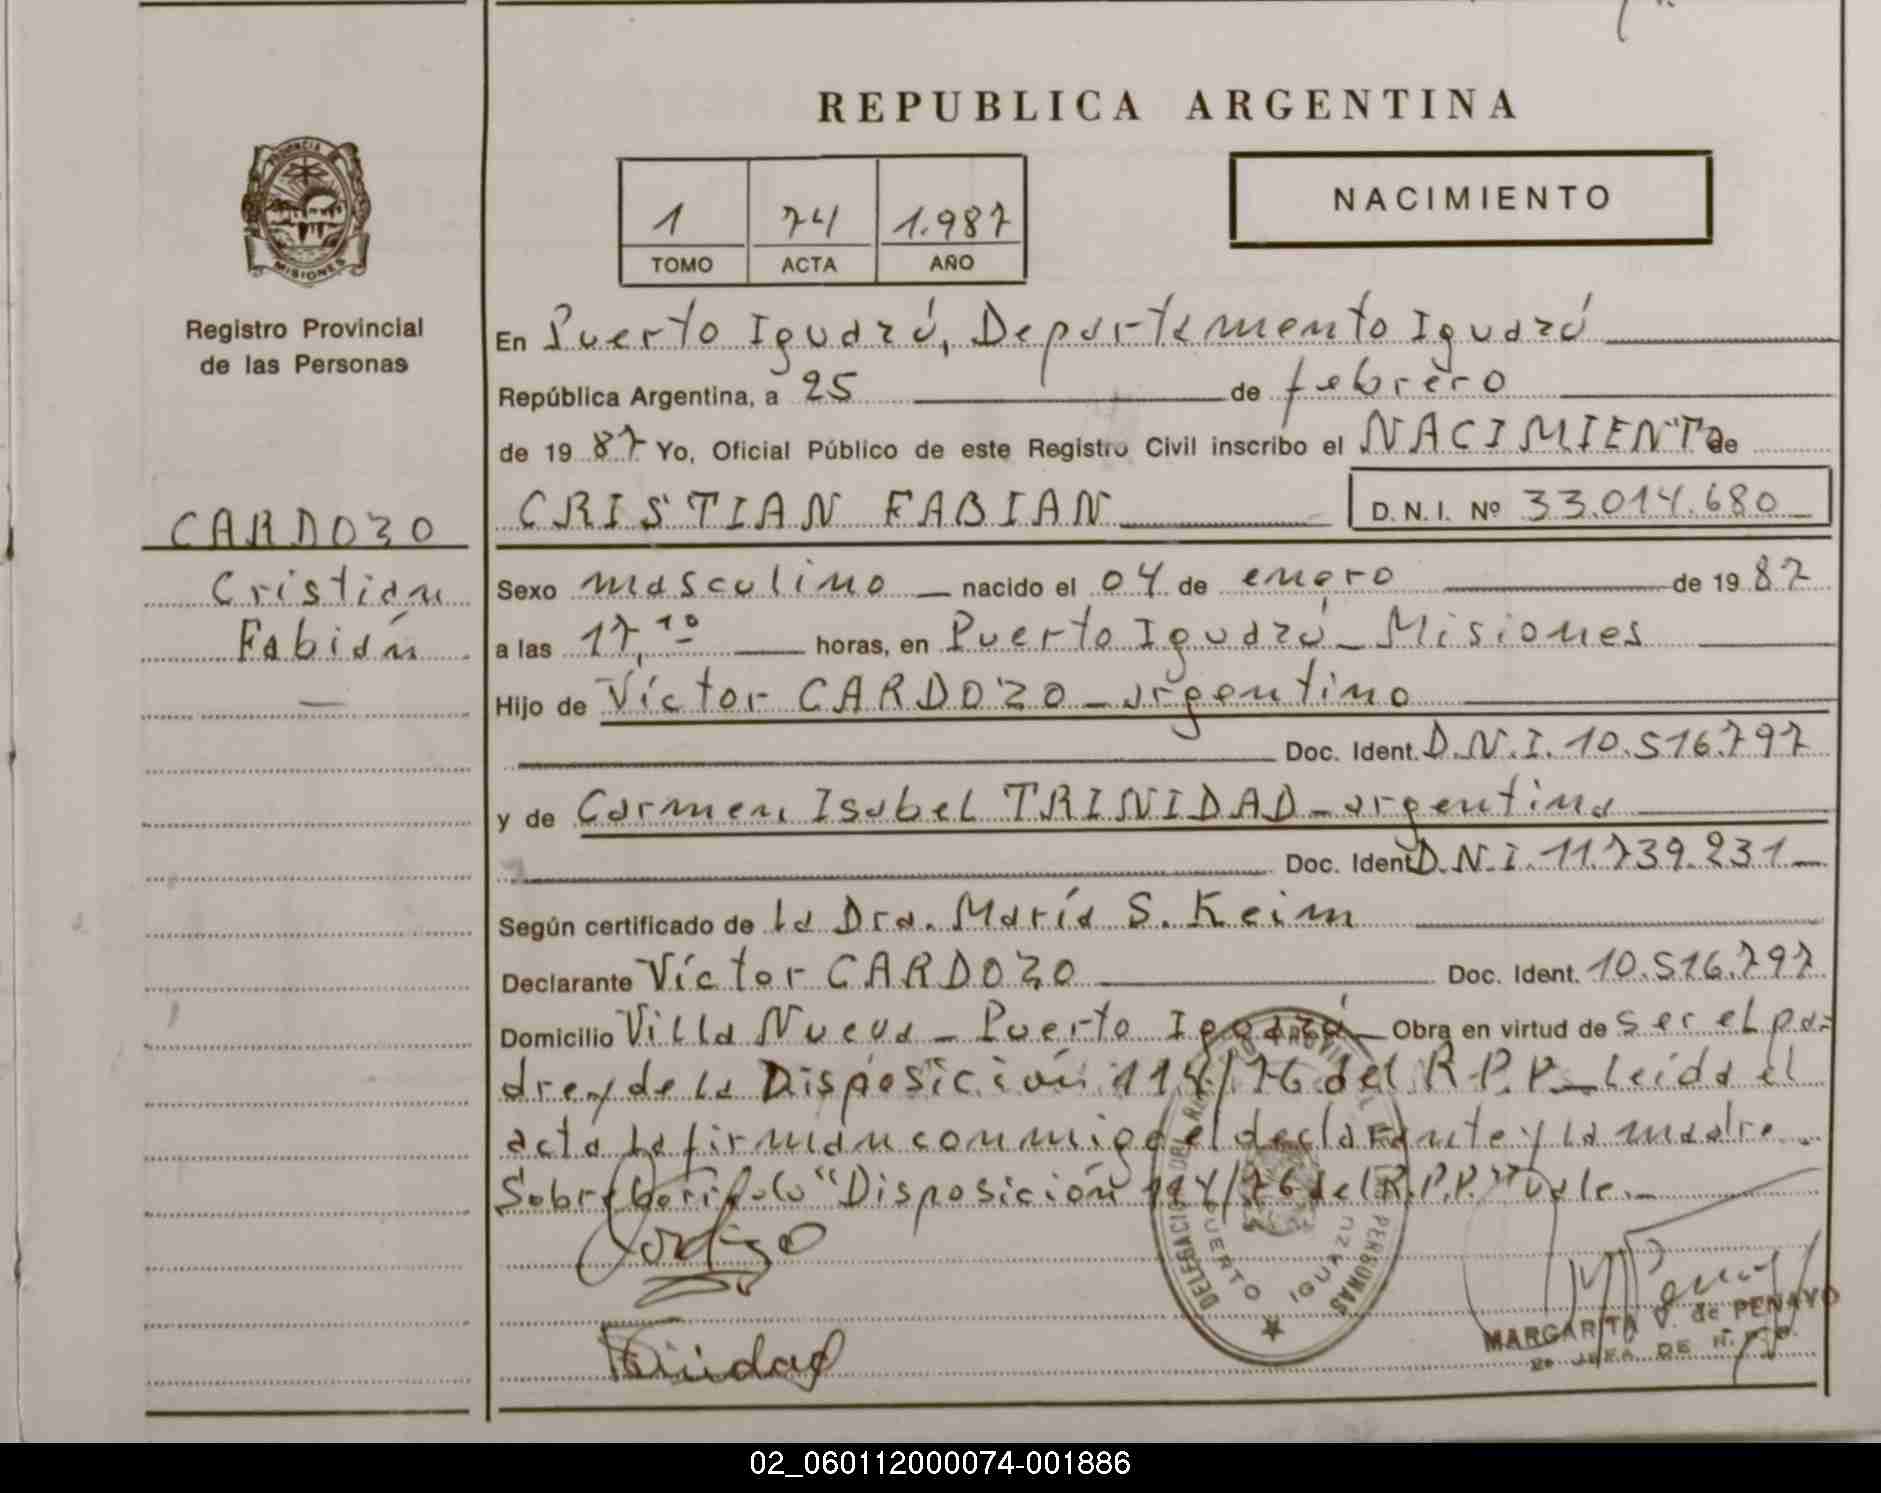 REPUBLICA ARGENTINA
PROVINCIA DE
MISIONES
Registro Provincial
de las Personas
CARDOZO
Cristian
Fabián
1 74 1.987
TOMO ACTA AÑO
NACIMIENTO
En Puerto Iguazú, Departamento Iguazú
República Argentina, a 25 de febrero
de 19 87 Yo, Oficial Público de este Registro Civil inscribo el NACIMIENTO de
CRISTIAN FABIAN D.N.I. Nº 33.014.680
Sexo masculino nacido el 04 de enero de 19 87
a las 17,10 horas, en Puerto Iguazú - Misiones
Hijo de Víctor CARDOZO - argentino
Doc. Ident. D.N.I. 10.516.797
y de Carmen Isabel TRINIDAD - argentina
Doc. Ident D.N.I. 11.739.231
Según certificado de la Dra. María S. Keim
Declarante Víctor CARDOZO Doc. Ident. 10.516.797
Domicilio Villa Nueva - Puerto Iguazú Obra en virtud de ser el pa-
dre y de la Disposición 114/76 del R.P.P. Leída el
acta la firman conmigo el declarante y la madre.
Sobreborrado "Disposición 114/76 del R.P.P." vale.
Cardozo
Trinidad
PUERTO IGUAZU
MARGARITA V. de PENAYO
JEFA DE
02_060112000074-001886